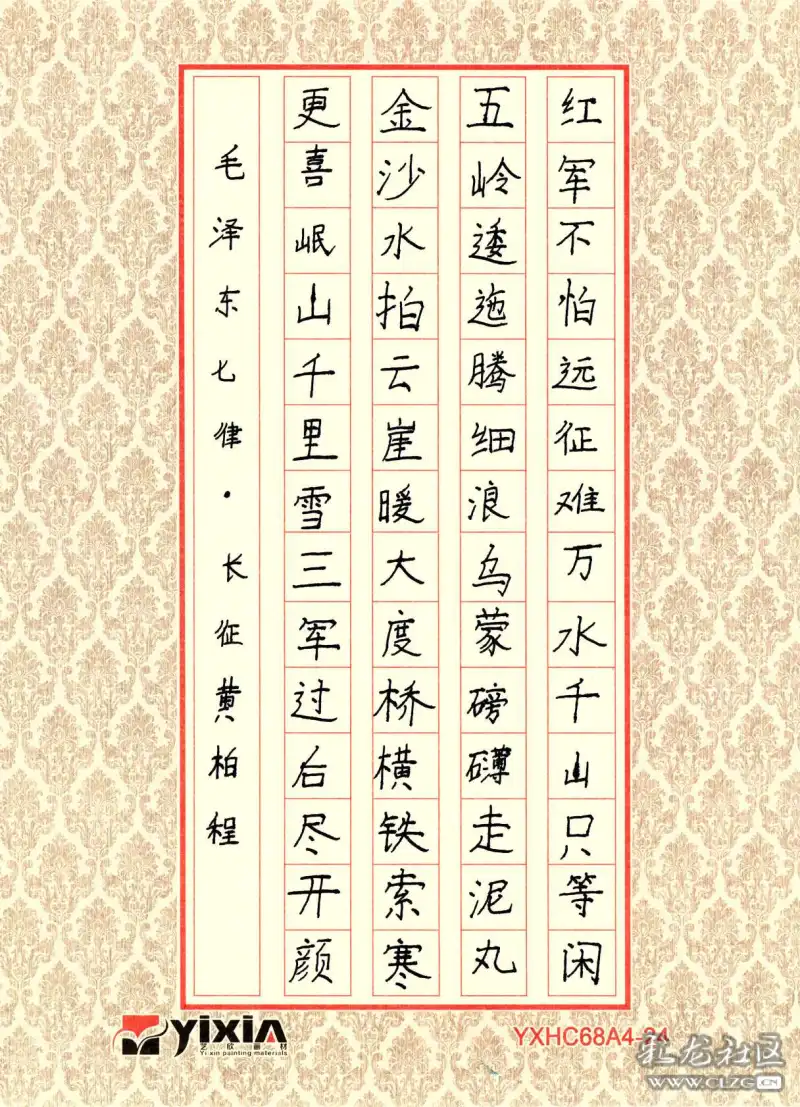 红军不怕远征难万水千山只等闲
五岭逶迤腾细浪乌蒙磅礴走泥丸
金沙水拍云崖暖大度桥横铁索寒
更喜岷山千里雪三军过后尽开颜
毛泽东七律·长征黄柏程
yixin
艺欣画材
Yi xin painting materials
YXHC68A4-24
礼龙社区
WWW.CLZG.CN